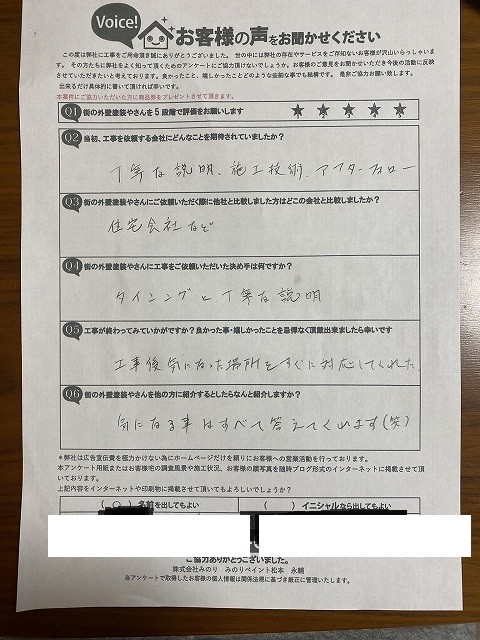 Voice!
お客様の声をお聞かせください
この度は弊社に工事をご用命頂き誠にありがとうございました。世の中には弊社の存在やサービスをご存知ないお客様が沢山いらっしゃいま
す。その方たちに弊社をよく知って頂くためのアンケートにご協力頂けないでしょうか。お客様のご意見をお聞かせいただき今後の活動に反映
させていただきたいと考えております。良かったこと、嬉しかったことどのような些細な事でも結構です。是非ご協力お願い致します。
出来るだけ具体的に書いて頂ければ幸いです。
本案件にご協力いただいた方に商品券をプレゼントさせて頂きます。
Q1 街の外壁塗装やさんを5段階で評価をお願いします ★ ★ ★ ★ ★
Q2 当初、工事を依頼する会社にどんなことを期待されていましたか?
丁寧な説明、施工技術、アフターフォロー
Q3 街の外壁塗装やさんにご依頼いただく際に他社と比較しました方はどこの会社と比較しましたか?
住宅会社など
Q4 街の外壁塗装やさんに工事をご依頼いただいた決め手は何ですか?
タイミングと丁寧な説明
Q5 工事が終わってみていかがですか?良かった事・嬉しかったことを忌憚なく頂戴出来ましたら幸いです
工事後気になった場所をすぐに対応してくれた
Q6 街の外壁塗装やさんを他の方に紹介するとしたらなんと紹介しますか?
気になる事はすべて答えてくれます(笑)
*弊社は広告宣伝費を極力かけない為にホームページだけを頼りにお客様への営業活動を行っております。
本アンケート用紙またはお客様宅の調査風景や施工状況、お客様の顔写真を随時ブログ形式のインターネットに掲載させて頂
いております。
上記内容をインターネットや印刷物に掲載させて頂いてもよろしいでしょうか?
(○)名前を出してもよい ( )イニシャルなら出してもよい
ご協力ありがとうございました。
株式会社みのり みのりペイント松本 永輔
当アンケートで取得したお客様の個人情報は関係法規に基づき厳正に管理いたします。